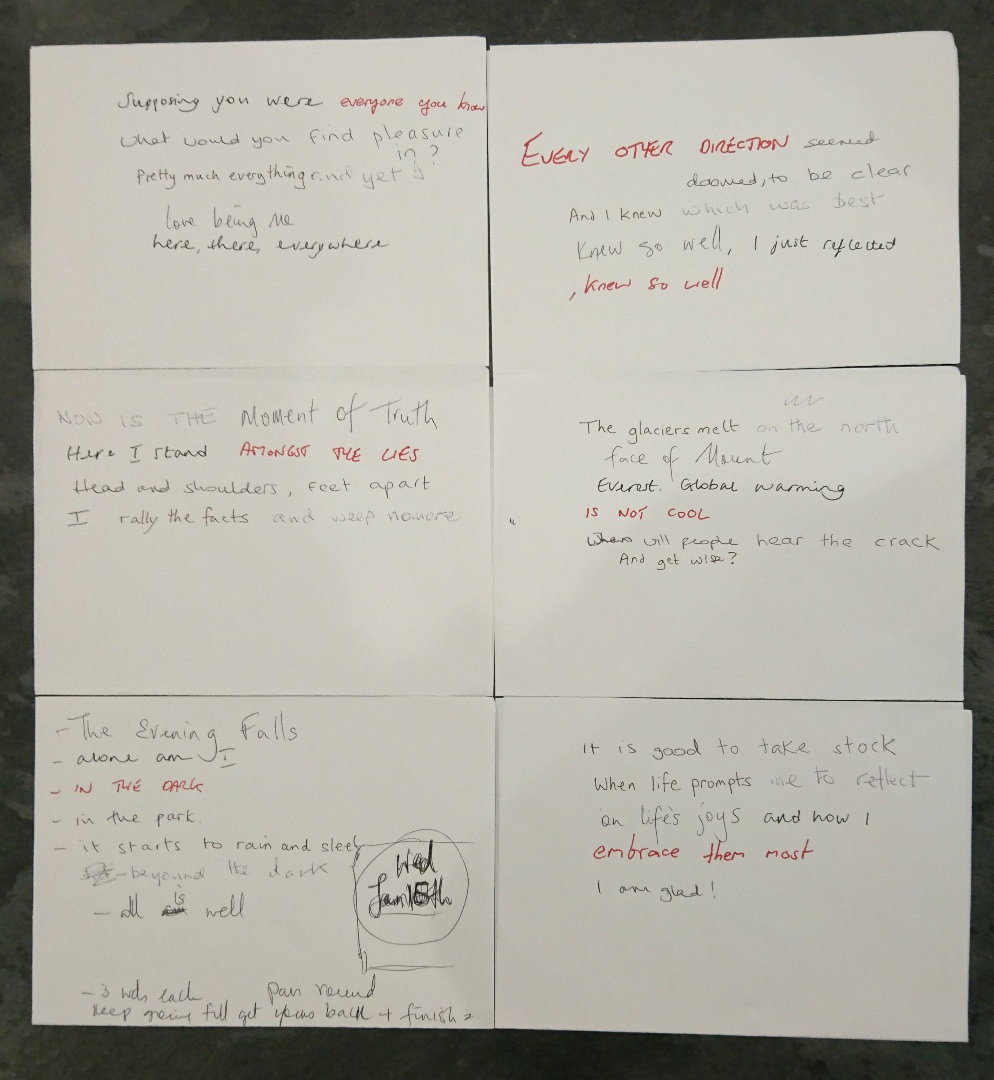 Supposing you were everyone you know
what would you find pleasure
in?
Pretty much everything and yet I
Love being me
here, there, everywhere
EVERY OTHER DIRECTION seemed
doomed, to be clear
And I knew which was best
Knew so well, I just reflected
, knew so well
NOW IS THE Moment of Truth
Here I stand AMONGST THE LIES
Head and shoulders, feet apart
I rally the facts and weep nomore
The glaciers melt on the north
face of Mount
Everest. Global warming
IS NOT COOL
When will people hear the crack
And get wise?
- The Evening Falls
- alone am I
- IN THE DARK
- in the park.
- it starts to rain and sleet
- beyound the dark
- all is well
Wed
Jan 15th
- 3 wds each pass round
keep going till get yours back + finish
It is good to take stock
When life prompts me to reflect
on life's joys and how I
embrace them most
I am glad!